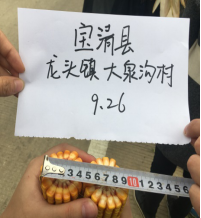 宝清县
龙头镇 大泉沟村
9.26
3 4 5 6 7 8 9 10 1 2 3 4 5 6